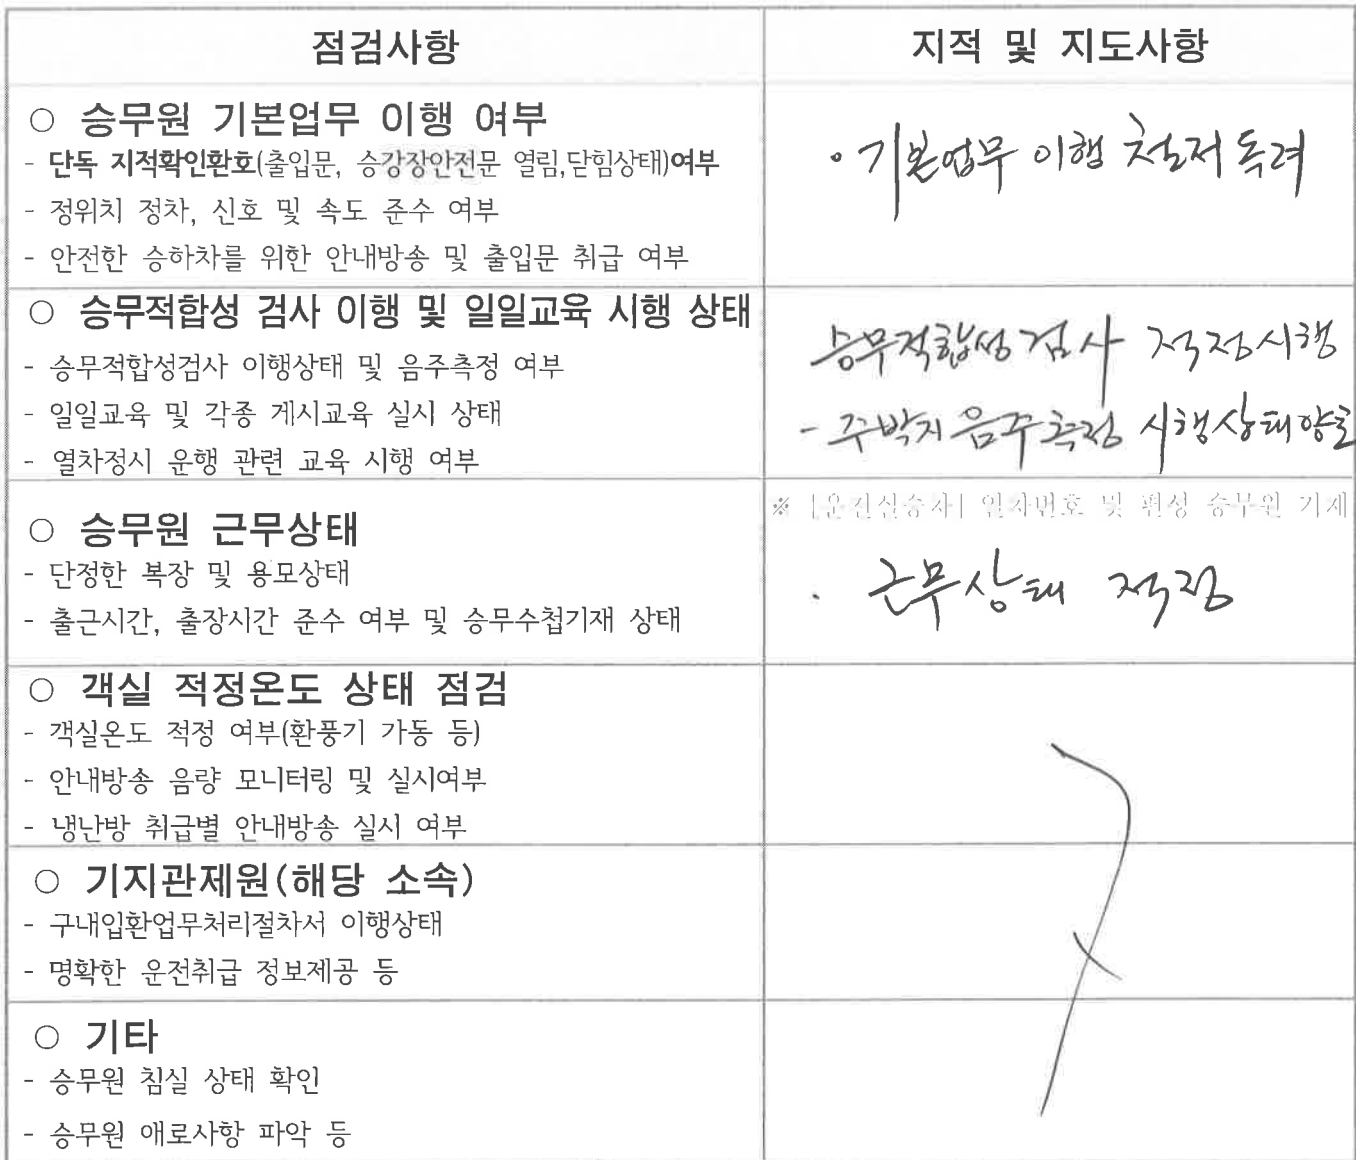 점검사항
지적 및 지도사항
○ 승무원 기본업무 이행 여부
- 단독 지적확인환호(출입문, 승강장안전문 열림,닫힘상태)여부
- 정위치 정차, 신호 및 속도 준수 여부
- 안전한 승하차를 위한 안내방송 및 출입문 취급 여부
· 기본업무 이행 철저 독려
○ 승무적합성 검사 이행 및 일일교육 시행 상태
- 승무적합성검사 이행상태 및 음주측정 여부
- 일일교육 및 각종 게시교육 실시 상태
- 열차정시 운행 관련 교육 시행 여부
승무적합성검사 적정시행
- 주박지 음주측정 시행상태양호
○ 승무원 근무상태
- 단정한 복장 및 용모상태
- 출근시간, 출장시간 준수 여부 및 승무수첩기재 상태
※ [운전실승차] 열차번호 및 편성 승무원 기재
· 근무상태 적정
○ 객실 적정온도 상태 점검
- 객실온도 적정 여부(환풍기 가동 등)
- 안내방송 음량 모니터링 및 실시여부
- 냉난방 취급별 안내방송 실시 여부
○ 기지관제원(해당 소속)
- 구내입환업무처리절차서 이행상태
- 명확한 운전취급 정보제공 등
○ 기타
- 승무원 침실 상태 확인
- 승무원 애로사항 파악 등